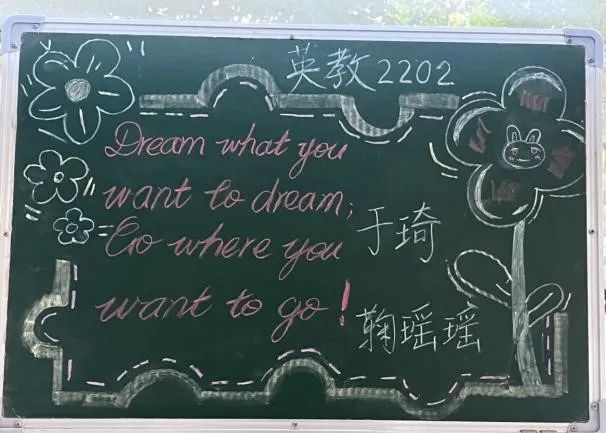 英教2202
Dream what you
want to dream;
Go where you
want to go!
于琦
鞠瑶瑶